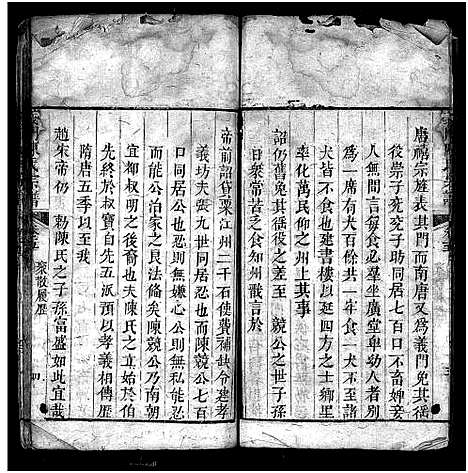 唐禧宗旌表其門而南唐又為義門免其徭
役崇子兖兖子昉同居七百口不畜婢妾
為一席有犬百餘共一牢食一犬不至諸
人言間言每食必羣坐廣堂卑幼人者別
犬皆不食也建書樓以延四方之士鄉里
率化萬民仰之州上其事
詔仍舊免其徭役之差至 競公之世子孫
日衆常苦乏食知州 戩言於
帝前詔貸粟江州二千石使賛補缺令建孝
義坊夫張九世同居忍也而陳競公七百
口同居公也忍則無嫌心公則無問言若
而能公治家之良法備矣陳競公乃南朝
宜都王叔明之後裔也夫陳氏之立始於伯
先終於叔寶自先五派預以孝義相傳歷
隋唐五季以至我
趙宋帝仍 勅陳氏之子孫富盛如此宜哉
聚散履歷
四